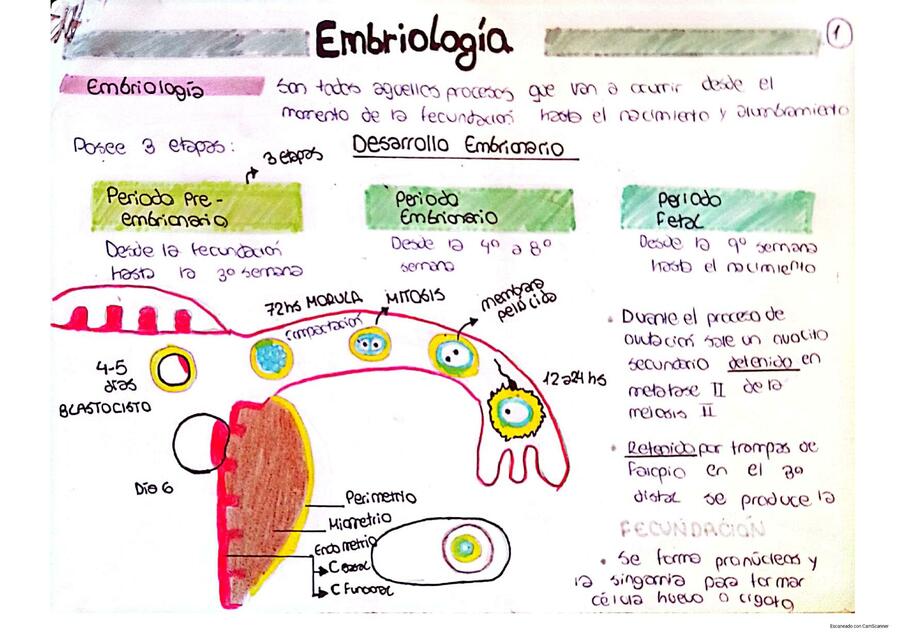 Embriología
1
Embriología
Son todos aquellos procesos que van a ocurrir desde el
momento de la fecundación hasta el nacimiento y alumbramiento
Posee 3 etapas:
3 etapas
Desarrollo Embrionario
Periodo Pre-
embrionario
Desde la fecundación
hasta la 3º semana
Periodo
Embrionario
Desde la 4º a 8º
semana
Periodo
Fetal
Desde la 9º semana
hasta el nacimiento
72hs MORULA
compactación
MITOSIS
membrana
pelúcida
12 a 24 hs
4-5
días
BLASTOCISTO
Día 6
Perimetrio
Miometrio
Endometrio
C basal
C Funcional
• Durante el proceso de
ovulación sale un ovocito
secundario detenido en
metafase II de la
meiosis II
• Retenido por trompas de
Falopio en el 3º
distal se produce la
FECUNDACIÓN
• Se forma pronúcleos y
la singamia para formar
célula huevo o cigoto
Escaneado con CamScanner